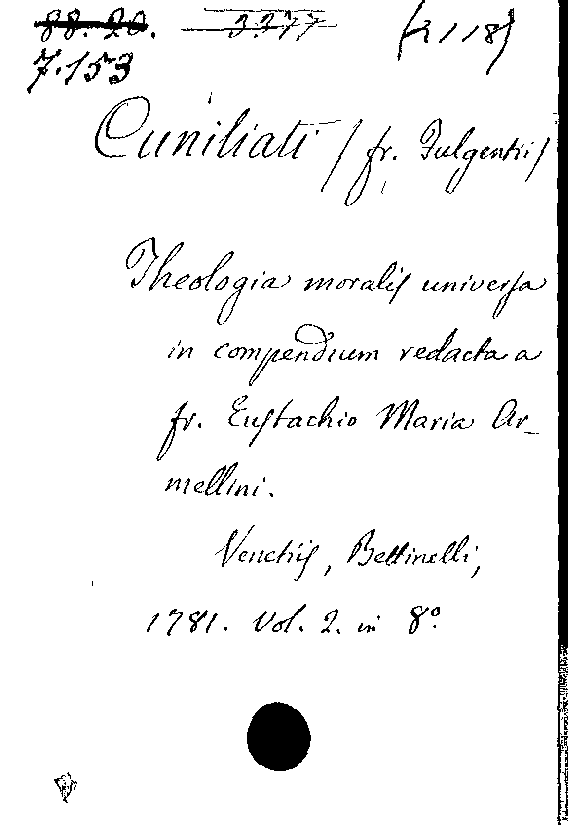 88. 20. 3377 (2118)
7.153
Cuniliati / fr. Fulgentii /
Theologia moralis universa
in compendium redacta a
fr. Eustachio Maria Ar-
mellini.
Venetiis, Bettinelli,
1781. Vol. 2. in 8º.